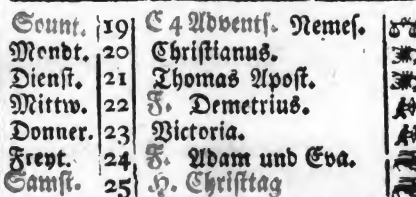 Sount. 19 C 4 Advents. Nemes.
Mondt. 20 Christianus.
Dienst. 21 Thomas Apost.
Mittw. 22 F. Demetrius.
Donner. 23 Victoria.
Freyt. 24 F. Adam und Eva.
Samst. 25 H. Christtag